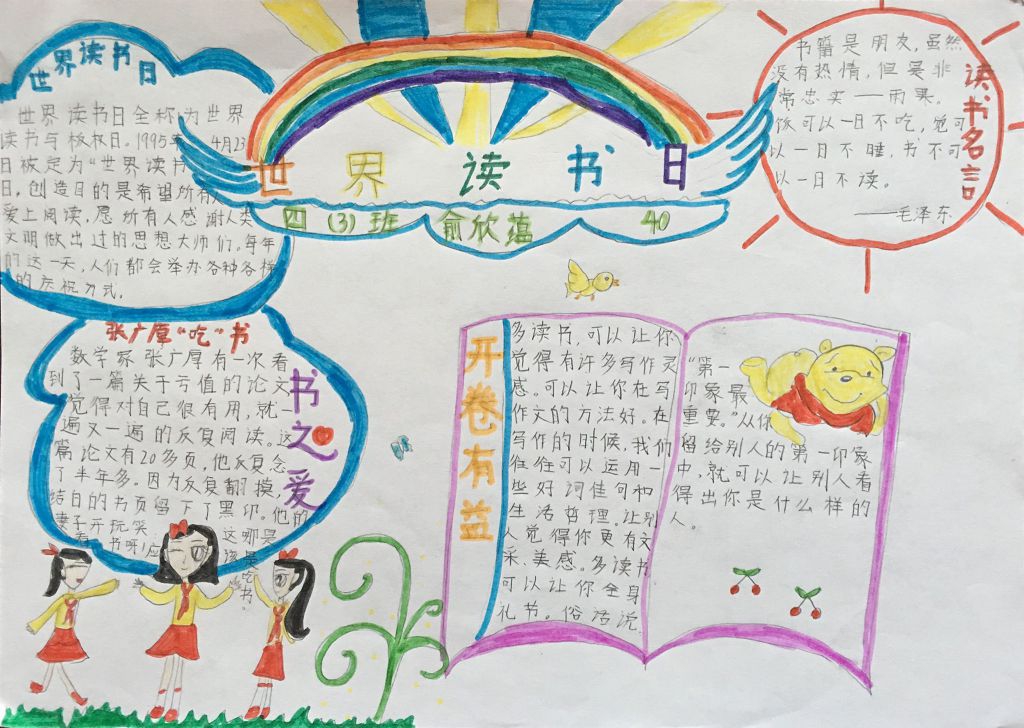 世界读书日
四(3)班 俞欣蕴 40
世界读书日
世界读书日全称为世界
读书与版权日。1995年 4月23
日被定为“世界读书
日，创造目的是希望所有人
爱上阅读，愿所有人感谢人类
文明做出过的思想大师们。每年
的这一天，人们都会举办各种各样
的庆祝方式。
读书名言
书籍是朋友，虽然
没有热情，但是非
常忠实——雨果。
饭可以一日不吃，觉可
以一日不睡，书不可
以一日不读。
——毛泽东
张广厚“吃”书
书之爱
数学家张广厚有一次看
到了一篇关于亏值的论文
觉得对自己很有用，就一
遍又一遍的反复阅读。这
篇论文有20多页，他反复念
了半年多。因为反复翻摸，
结白的书页留下了黑印。他的
妻子开玩笑 这哪是
看书呀！应该是吃书。
开卷有益
多读书，可以让你
觉得有许多写作灵
感。可以让你在写
作文的方法好。在
写作的时候，我们
往往可以运用一
些好词佳句和
生活哲理。让别
人觉得你更有文
采、美感。多读书
可以让你全身
礼节。俗话说
“第一
印象最
重要。”从你
留给别人的第一印象
中，就可以让别人看
得出你是什么样的
人。